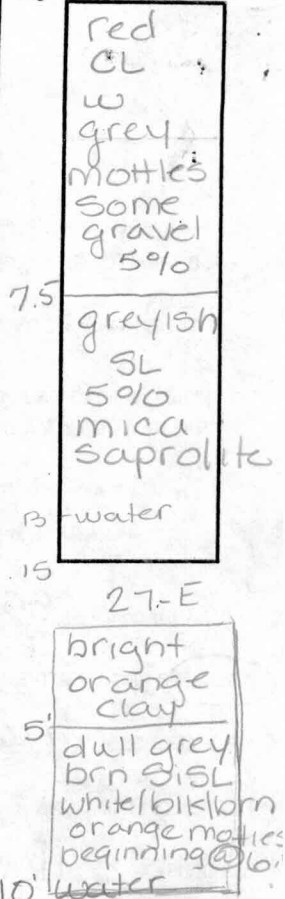 red
CL
w
grey
mottles
some
gravel
5%
7.5
greyish
SL
5%
mica
saprolite
13 water
15
27-E
bright
orange
clay
5'
dull grey
brn SiSL
white/blk/brn
orange mottles
beginning @ 6.
10' water